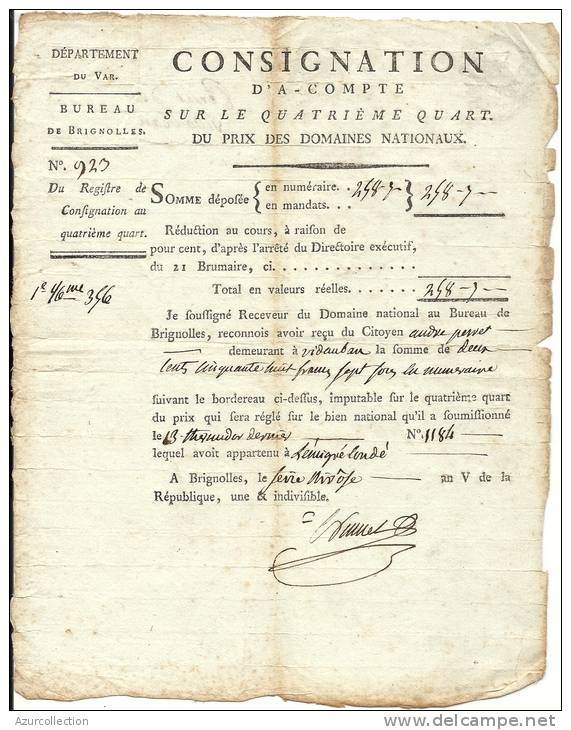 DÉPARTEMENT
DU VAR.
BUREAU
DE BRIGNOLLES.
N°. 923
Du Registre de
Consignation au
quatrième quart.
356
CONSIGNATION
D'A-COMPTE
SUR LE QUATRIÈME QUART.
DU PRIX DES DOMAINES NATIONAUX.
SOMME déposée { en numéraire. . 258-7 } 258-7
en mandats. . .
Réduction au cours, à raison de
pour cent, d'après l'arrêté du Directoire exécutif,
du 21 Brumaire, ci. . . . . . . . . . . . . .
Total en valeurs réelles. . . . . 258-7
Je soussigné Receveur du Domaine national au Bureau de
Brignolles, reconnois avoir reçu du Citoyen andré perret
demeurant à vidauban la somme de deux
cents cinquante huit francs sept sous en numeraire
suivant le bordereau ci-dessus, imputable sur le quatrième quart
du prix qui sera réglé sur le bien national qu'il a soumissionné
le 13 thermidor dernier N°. 1184
lequel avoit appartenu à L'émigré
A Brignolles, le seize nivôse an V de la
République, une & indivisible.
Azurcollection
delcampe.net